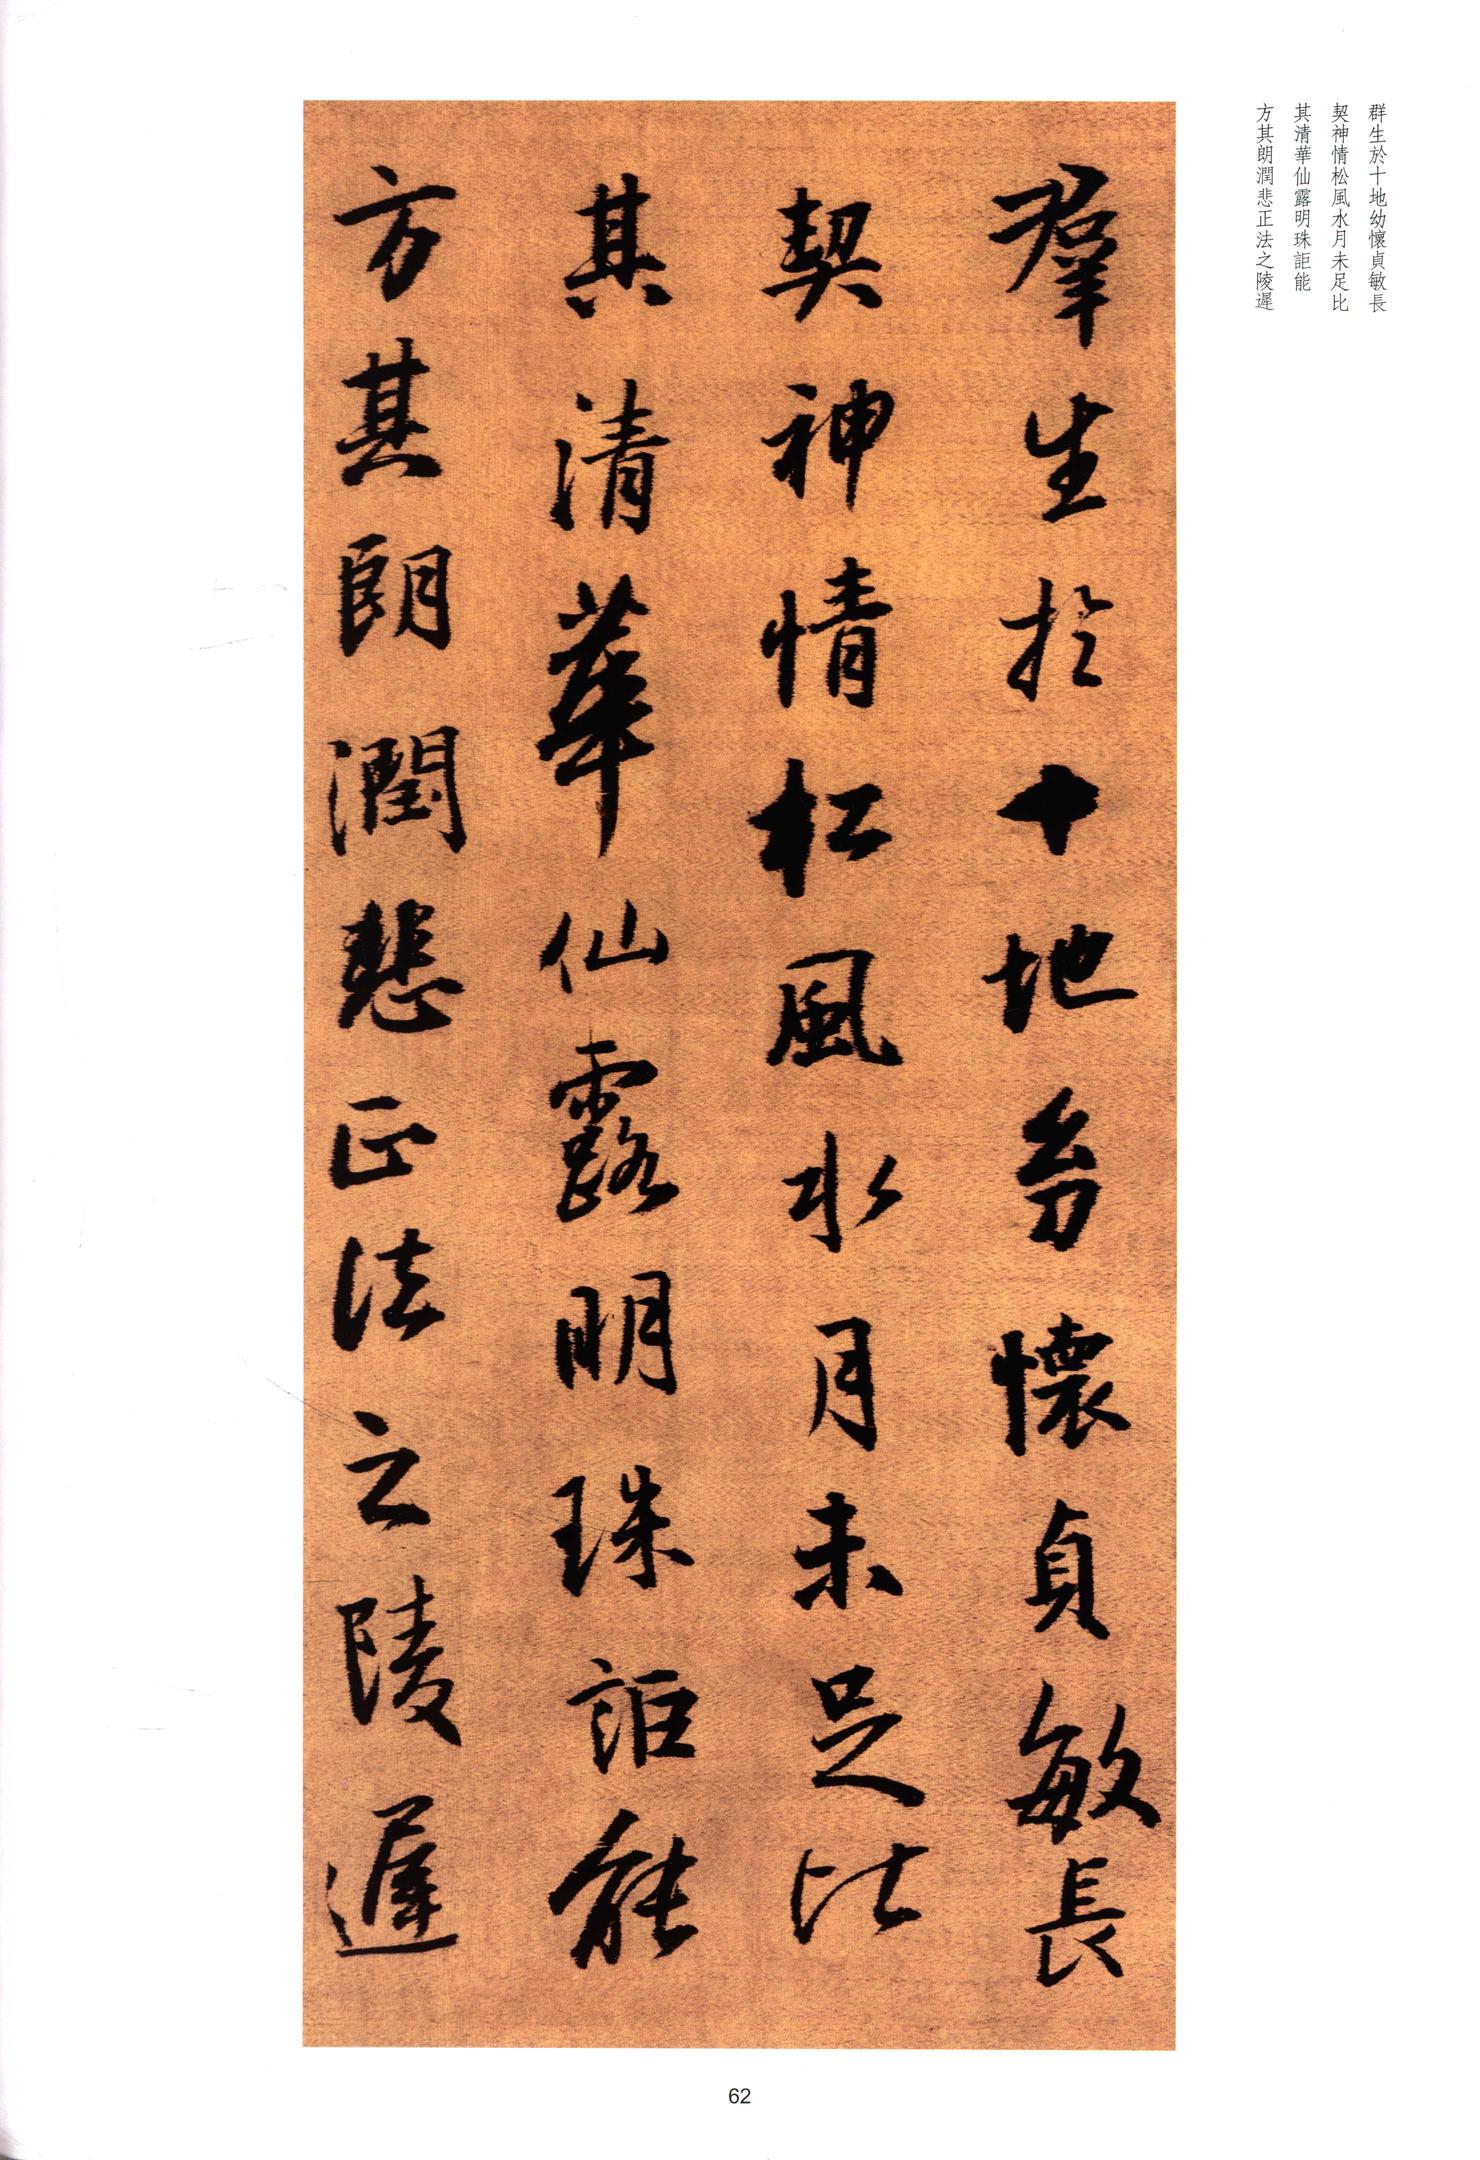 群生於十地幼懷貞敏長
契神情松風水月未足比
其清華仙露明珠詎能
方其朗潤悲正法之陵遲
羣生於十地幼懷貞敏長
契神情松風水月未足比
其清華仙露明珠詎能
方其朗潤悲正法之陵遲
62